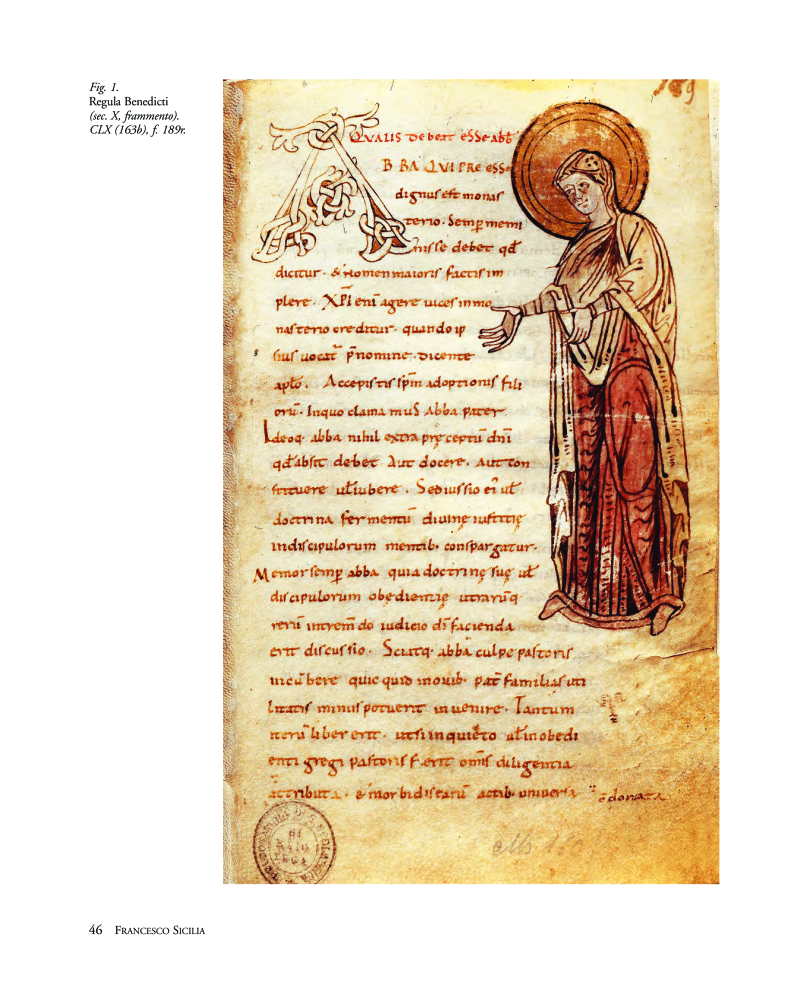 Fig. 1.
Regula Benedicti
(sec. X, frammento).
CLX (163b), f. 189r.
189
QVALIS debeat esse abb
BBA QVI PRE esse
dignus est monas
terio. Semp̄ memi
nisse debet qđ
dicitur. & nomen maioris factis im
plere. XPI enī agere uices in mo
nasterio creditur. quando ip
sius uocat̄ p̄nomine. dicente
aplō. Accepistis sp̄m adoptionis fili
orū. Inquo clamamus Abba pater
Ideoq. abba nihil extra pręceptū dn̄i
qđ absit debet Aut docere. Aut con
stituere ul̄ iubere. Sed iussio ei' ul̄
doctrina fermentū diuinę iustitię
indiscipulorum mentib. conspargatur.
Memor semp̄ abba quia doctrinę suę ul̄
discipulorum obędientię utrarūq
rerū intrem̄do iudicio dī facienda
erit discussio. Sciatq. abba culpe pastoris
incūbere quicquid inouib. pat̄ familias uti
litatis minus potuerit inuenire. Tantum
iterū liber erit. utsi inquieto ul̄ inobedi
enti gregi pastoris f.erit om̄is diligentia
attributa. & morbidis earū actib. uniuersa
46 FRANCESCO SICILIA